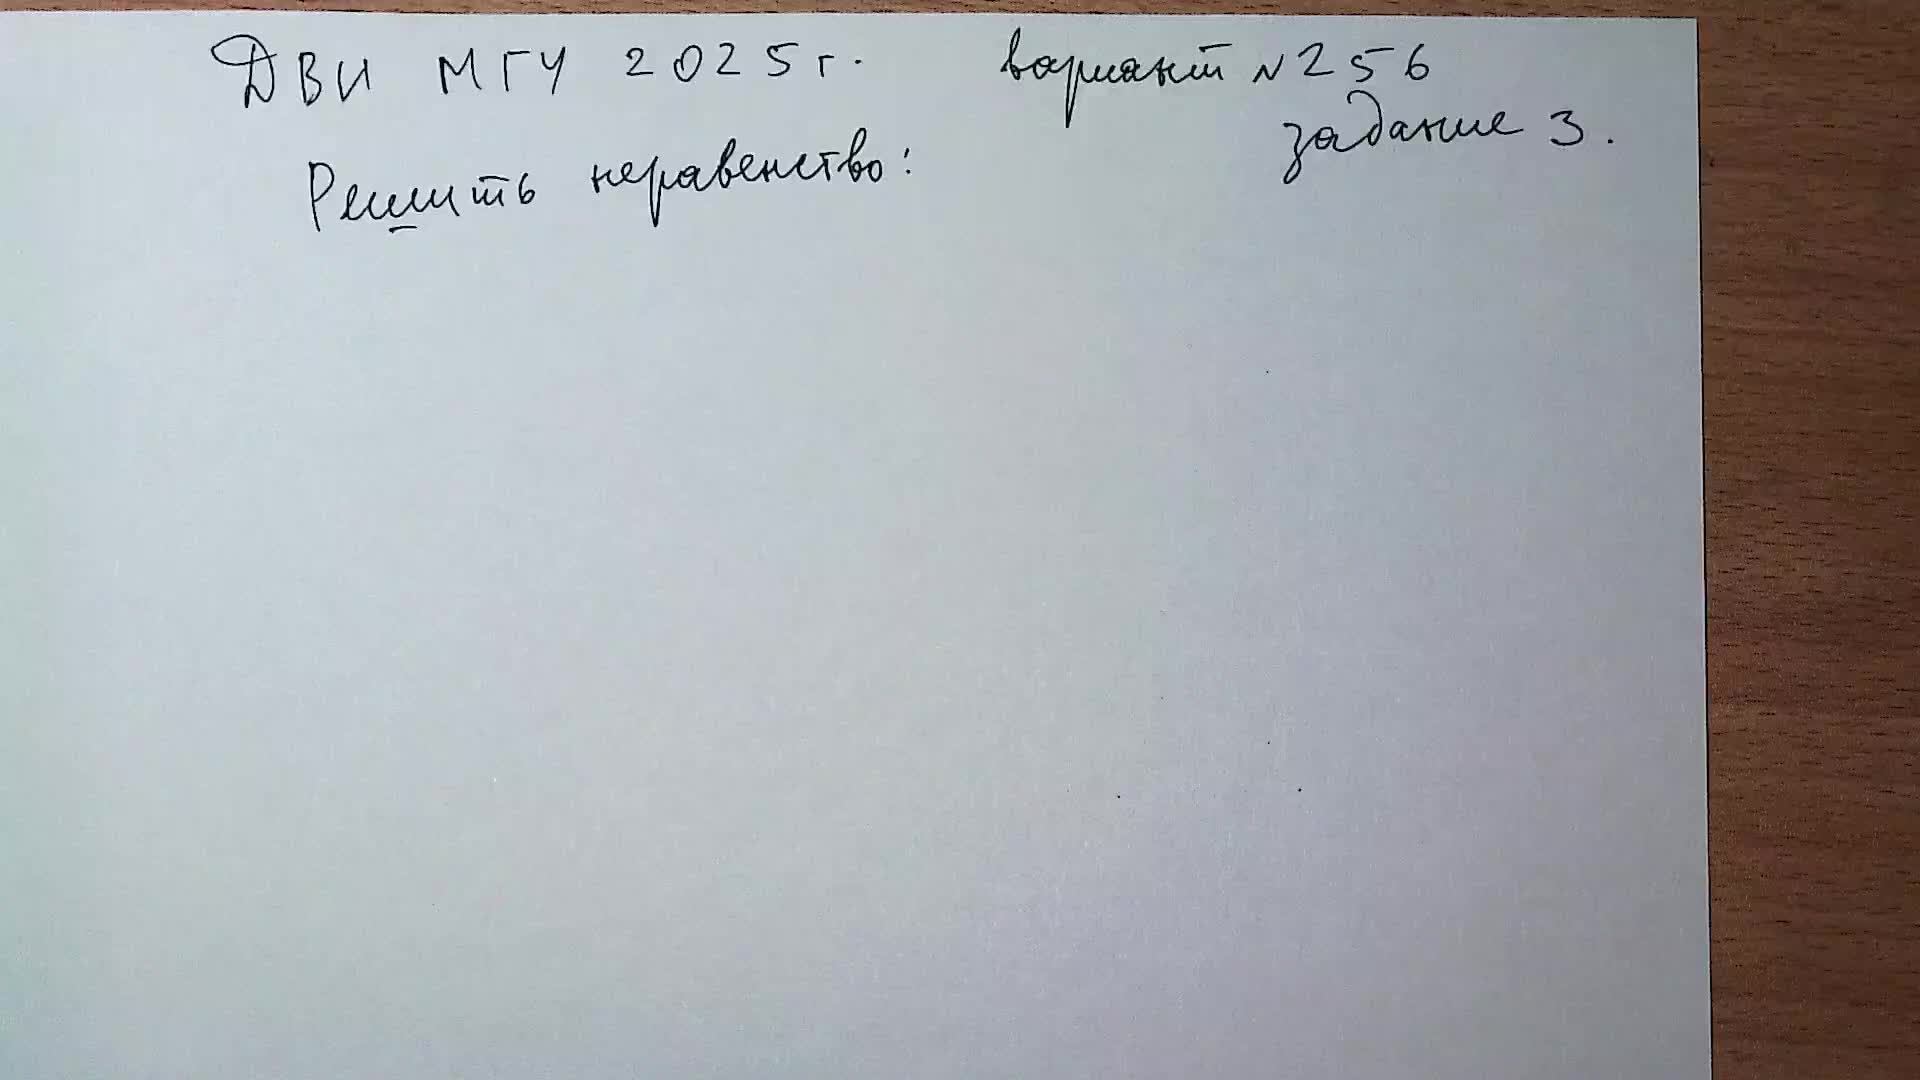 ДВИ МГУ 2025г. вариант №256
задание 3.
Решить неравенство: